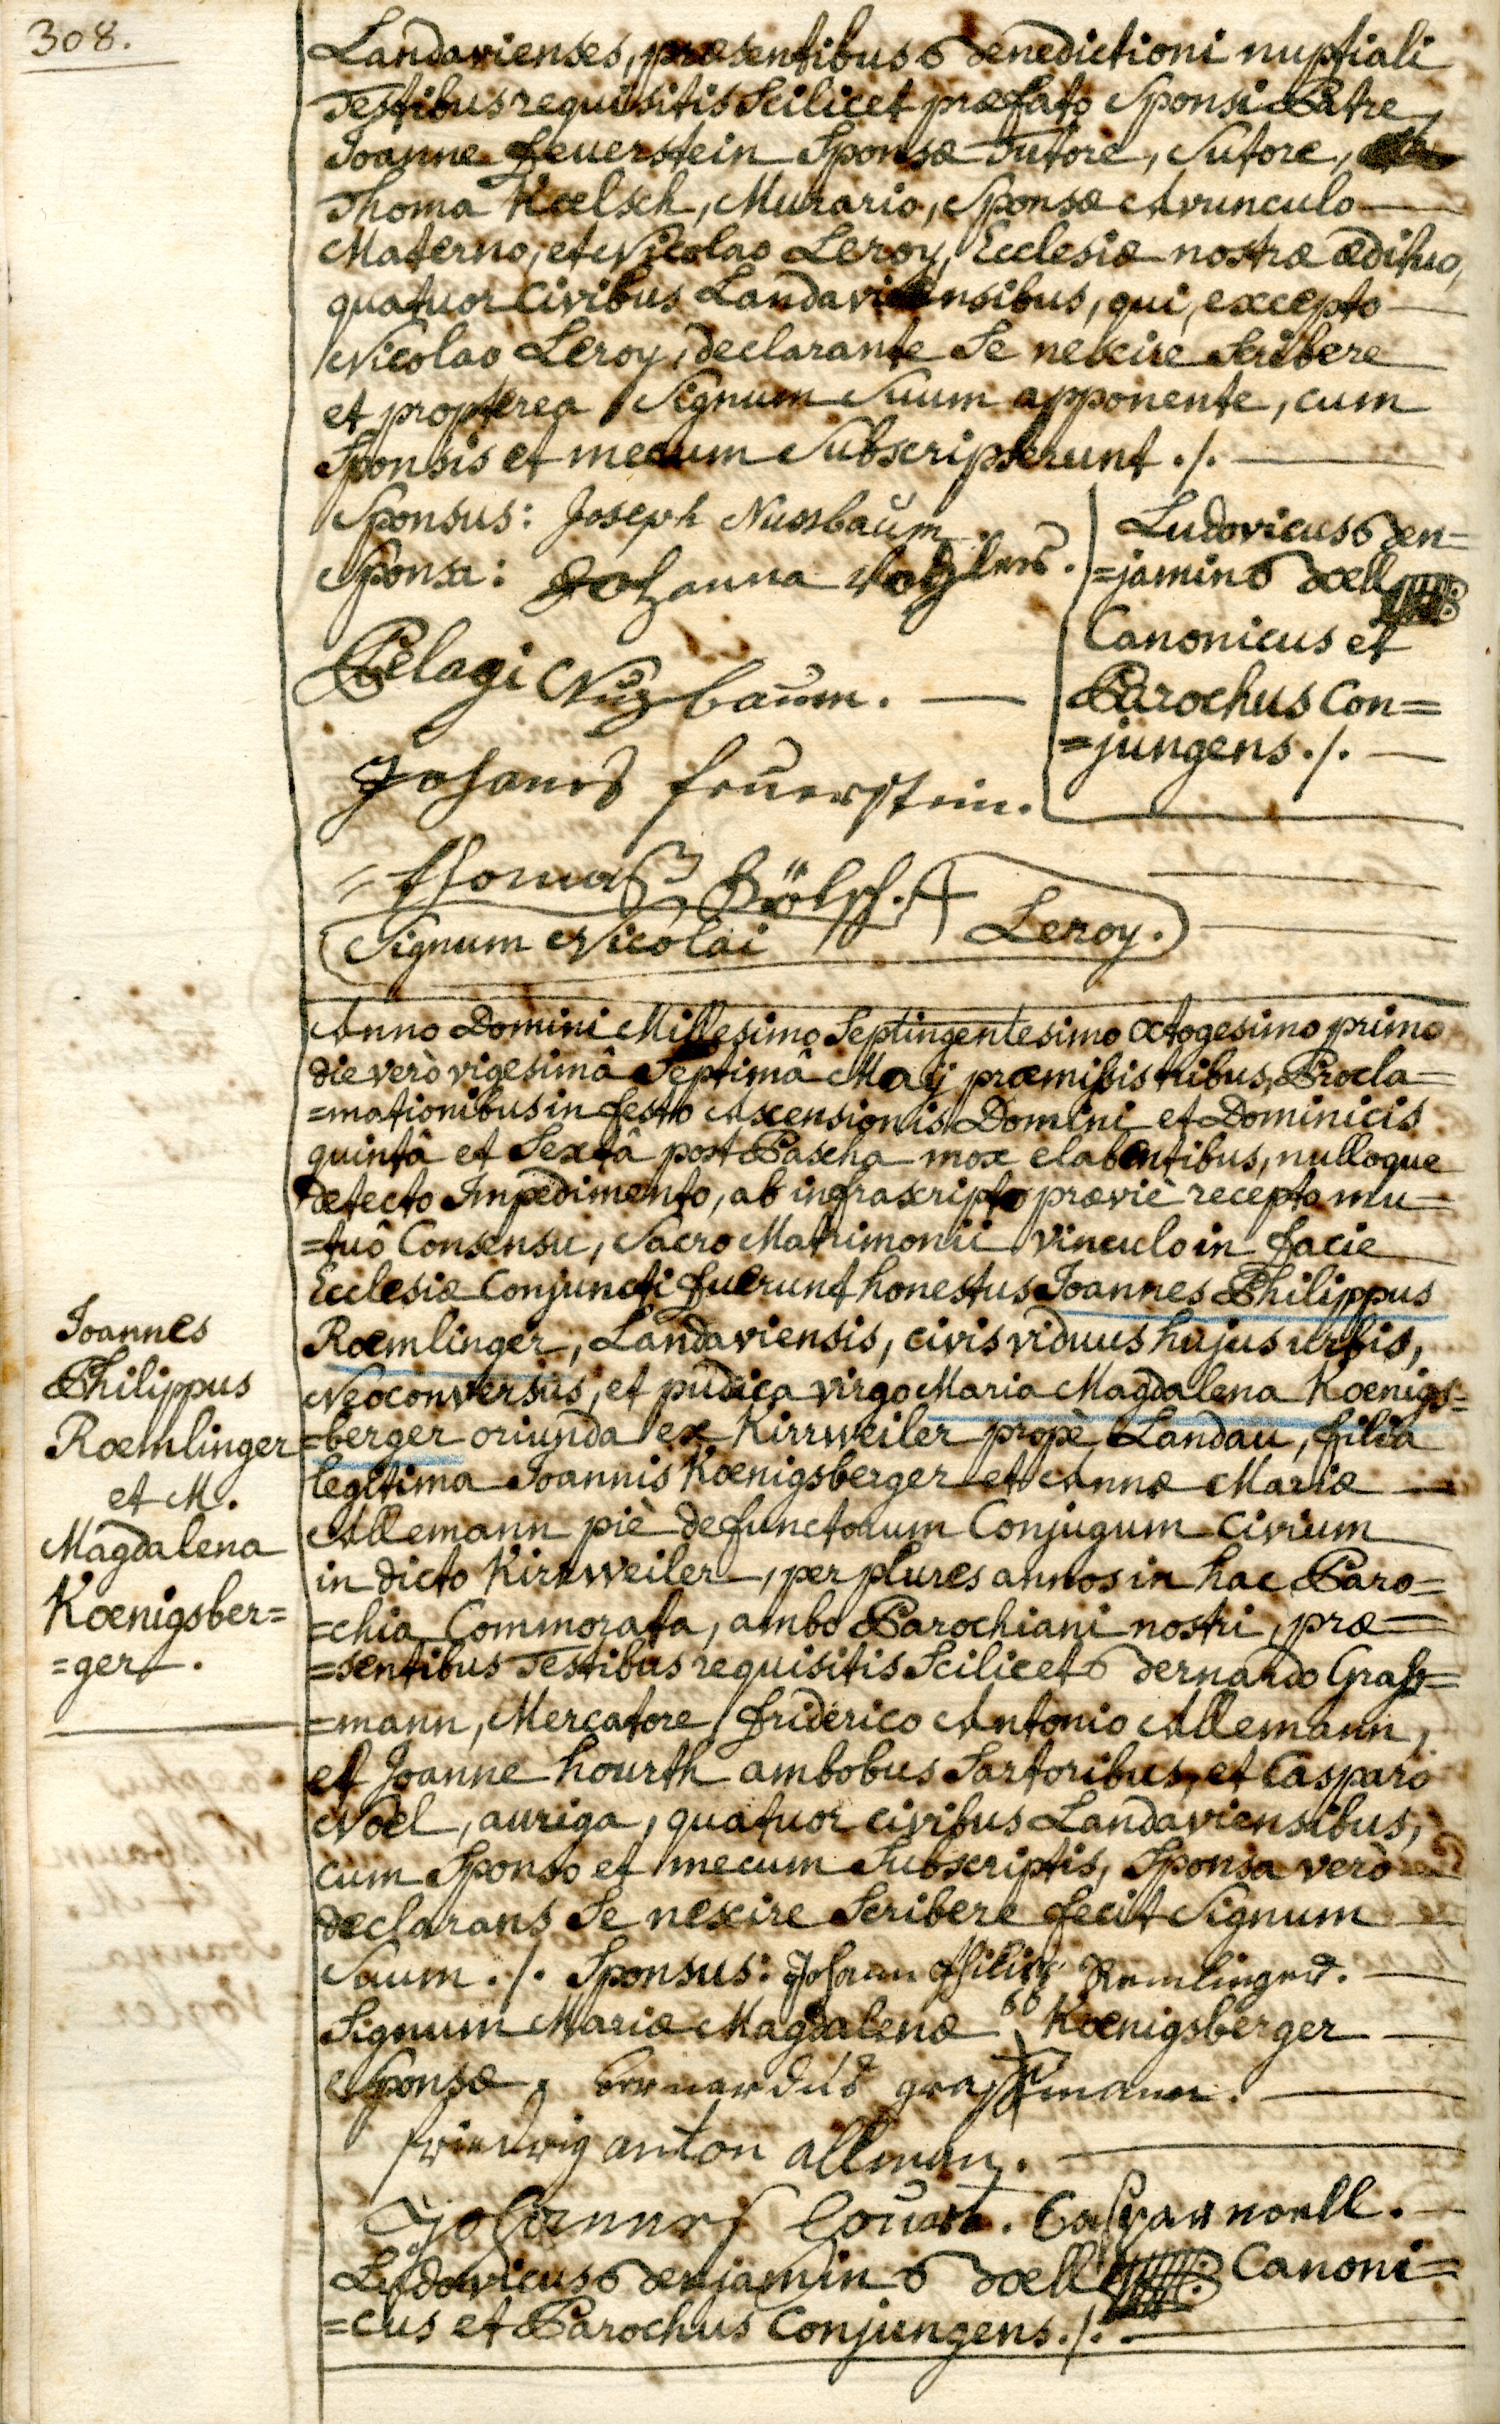 308.
Landavienses, præsentibus Benedictioni nuptiali
Testibus requisitis Scilicet præfato Sponsi Patre,
Joanne Feuerstein Sponsæ Tutore, Sutore,
Thoma Kœlsch, Murario, Sponsæ Avunculo
Materno, et Nicolao Leroy, Ecclesiæ nostræ ædituo,
quatuor Civibus Landaviensibus, qui, excepto
Nicolao Leroy, declarante Se nescire Scribere
et propterea Signum Suum apponente, cum
Sponsis et mecum Subscripserunt ./.
Sponsus: Joseph Nussbaum.
Sponsa: Johanna
Ludovicus Ben=
=jamin Bœll
Canonicus et
Parochus Con=
=jungens ./.
Pelagi Nuzbaum.
Johanes Feuerstein.
Thomas Kölsch.
Signum Nicolai Leroy.
Anno Domini Millesimo Septingentesimo Octogesimo primo
die verò vigesimâ Septimâ Maÿ præmissis tribus Procla=
=mationibus in festo Ascensionis Domini et Dominicis
quintâ et Sextâ post Pascha mox elabentibus, nulloque
detecto Impedimento, ab infrascripto præviè recepto mu=
=tuô Consensu, Sacro Matrimonii Vinculo in facie
Ecclesiæ Conjuncti fuerunt honestus Joannes Philippus
Rœmlinger, Landaviensis, civis viduus hujus urbis,
Neoconversus, et pudica virgo Maria Magdalena Kœnigs=
=berger oriunda ex Kirrweiler propè Landau, filia
legitima Joannis Kœnigsberger et Annæ Mariæ
Allemann piè defunctorum Conjugum Civium
in dicto Kirrweiler, per plures annos in hac Paro=
=chia Commorata, ambo Parochiani nostri, præ=
=sentibus Testibus requisitis Scilicet Bernardo Graß=
=mann, Mercatore, Friderico Antonio Allemann,
et Joanne hourth ambobus Sartoribus, et Casparo
Noël, auriga, quatuor civibus Landaviensibus,
cum Sponso et mecum Subscriptis, Sponsa verò
declarans Se nescire Scribere fecit Signum
Suum ./. Sponsus: Johann Philipp Remlinger.
Signum Mariæ Magdalenæ Kœnigsberger
Sponsæ, bernardus graßmann.
anton allman.
Johannes Caspar noell.
Ludovicus Benjamin Bœll Canoni=
=cus et Parochus Conjungens ./.
Joannes
Philippus
Rœmlinger
et M.
Magdalena
Kœnigsber=
=ger.